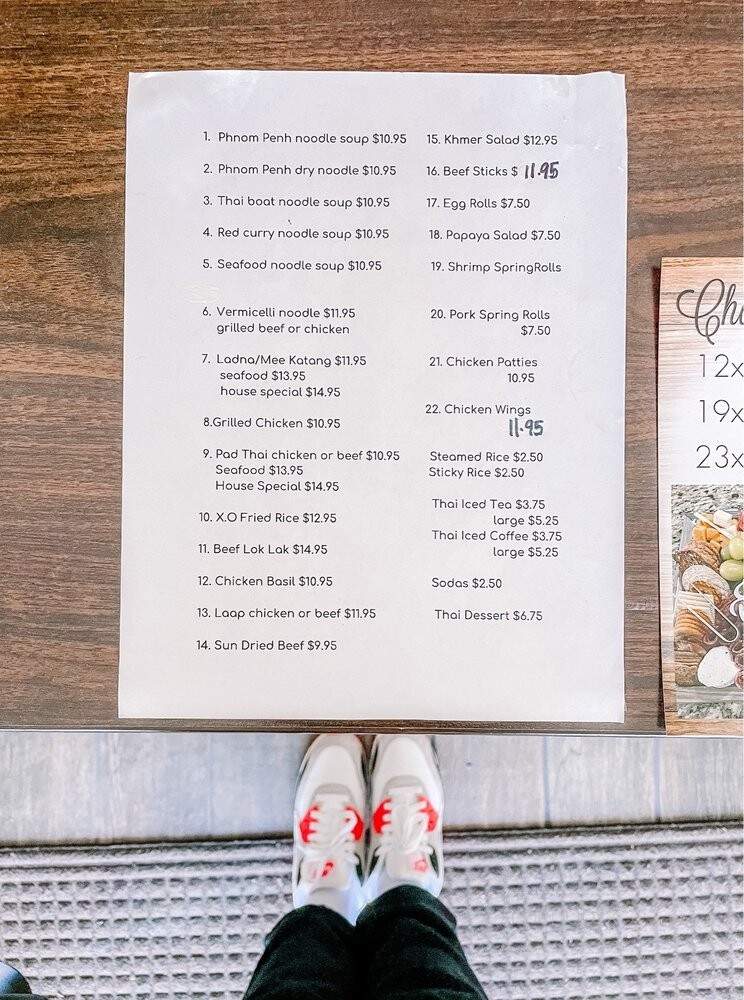 1. Phnom Penh noodle soup $10.95
2. Phnom Penh dry noodle $10.95
3. Thai boat noodle soup $10.95
4. Red curry noodle soup $10.95
5. Seafood noodle soup $10.95
6. Vermicelli noodle $11.95
grilled beef or chicken
7. Ladna/Mee Katang $11.95
seafood $13.95
house special $14.95
8.Grilled Chicken $10.95
9. Pad Thai chicken or beef $10.95
Seafood $13.95
House Special $14.95
10. X.O Fried Rice $12.95
11. Beef Lok Lak $14.95
12. Chicken Basil $10.95
13. Laap chicken or beef $11.95
14. Sun Dried Beef $9.95
15. Khmer Salad $12.95
16. Beef Sticks $ 11.95
17. Egg Rolls $7.50
18. Papaya Salad $7.50
19. Shrimp SpringRolls
20. Pork Spring Rolls
$7.50
21. Chicken Patties
10.95
22. Chicken Wings
11.95
Steamed Rice $2.50
Sticky Rice $2.50
Thai Iced Tea $3.75
large $5.25
Thai Iced Coffee $3.75
large $5.25
Sodas $2.50
Thai Dessert $6.75
12x
19x
23x